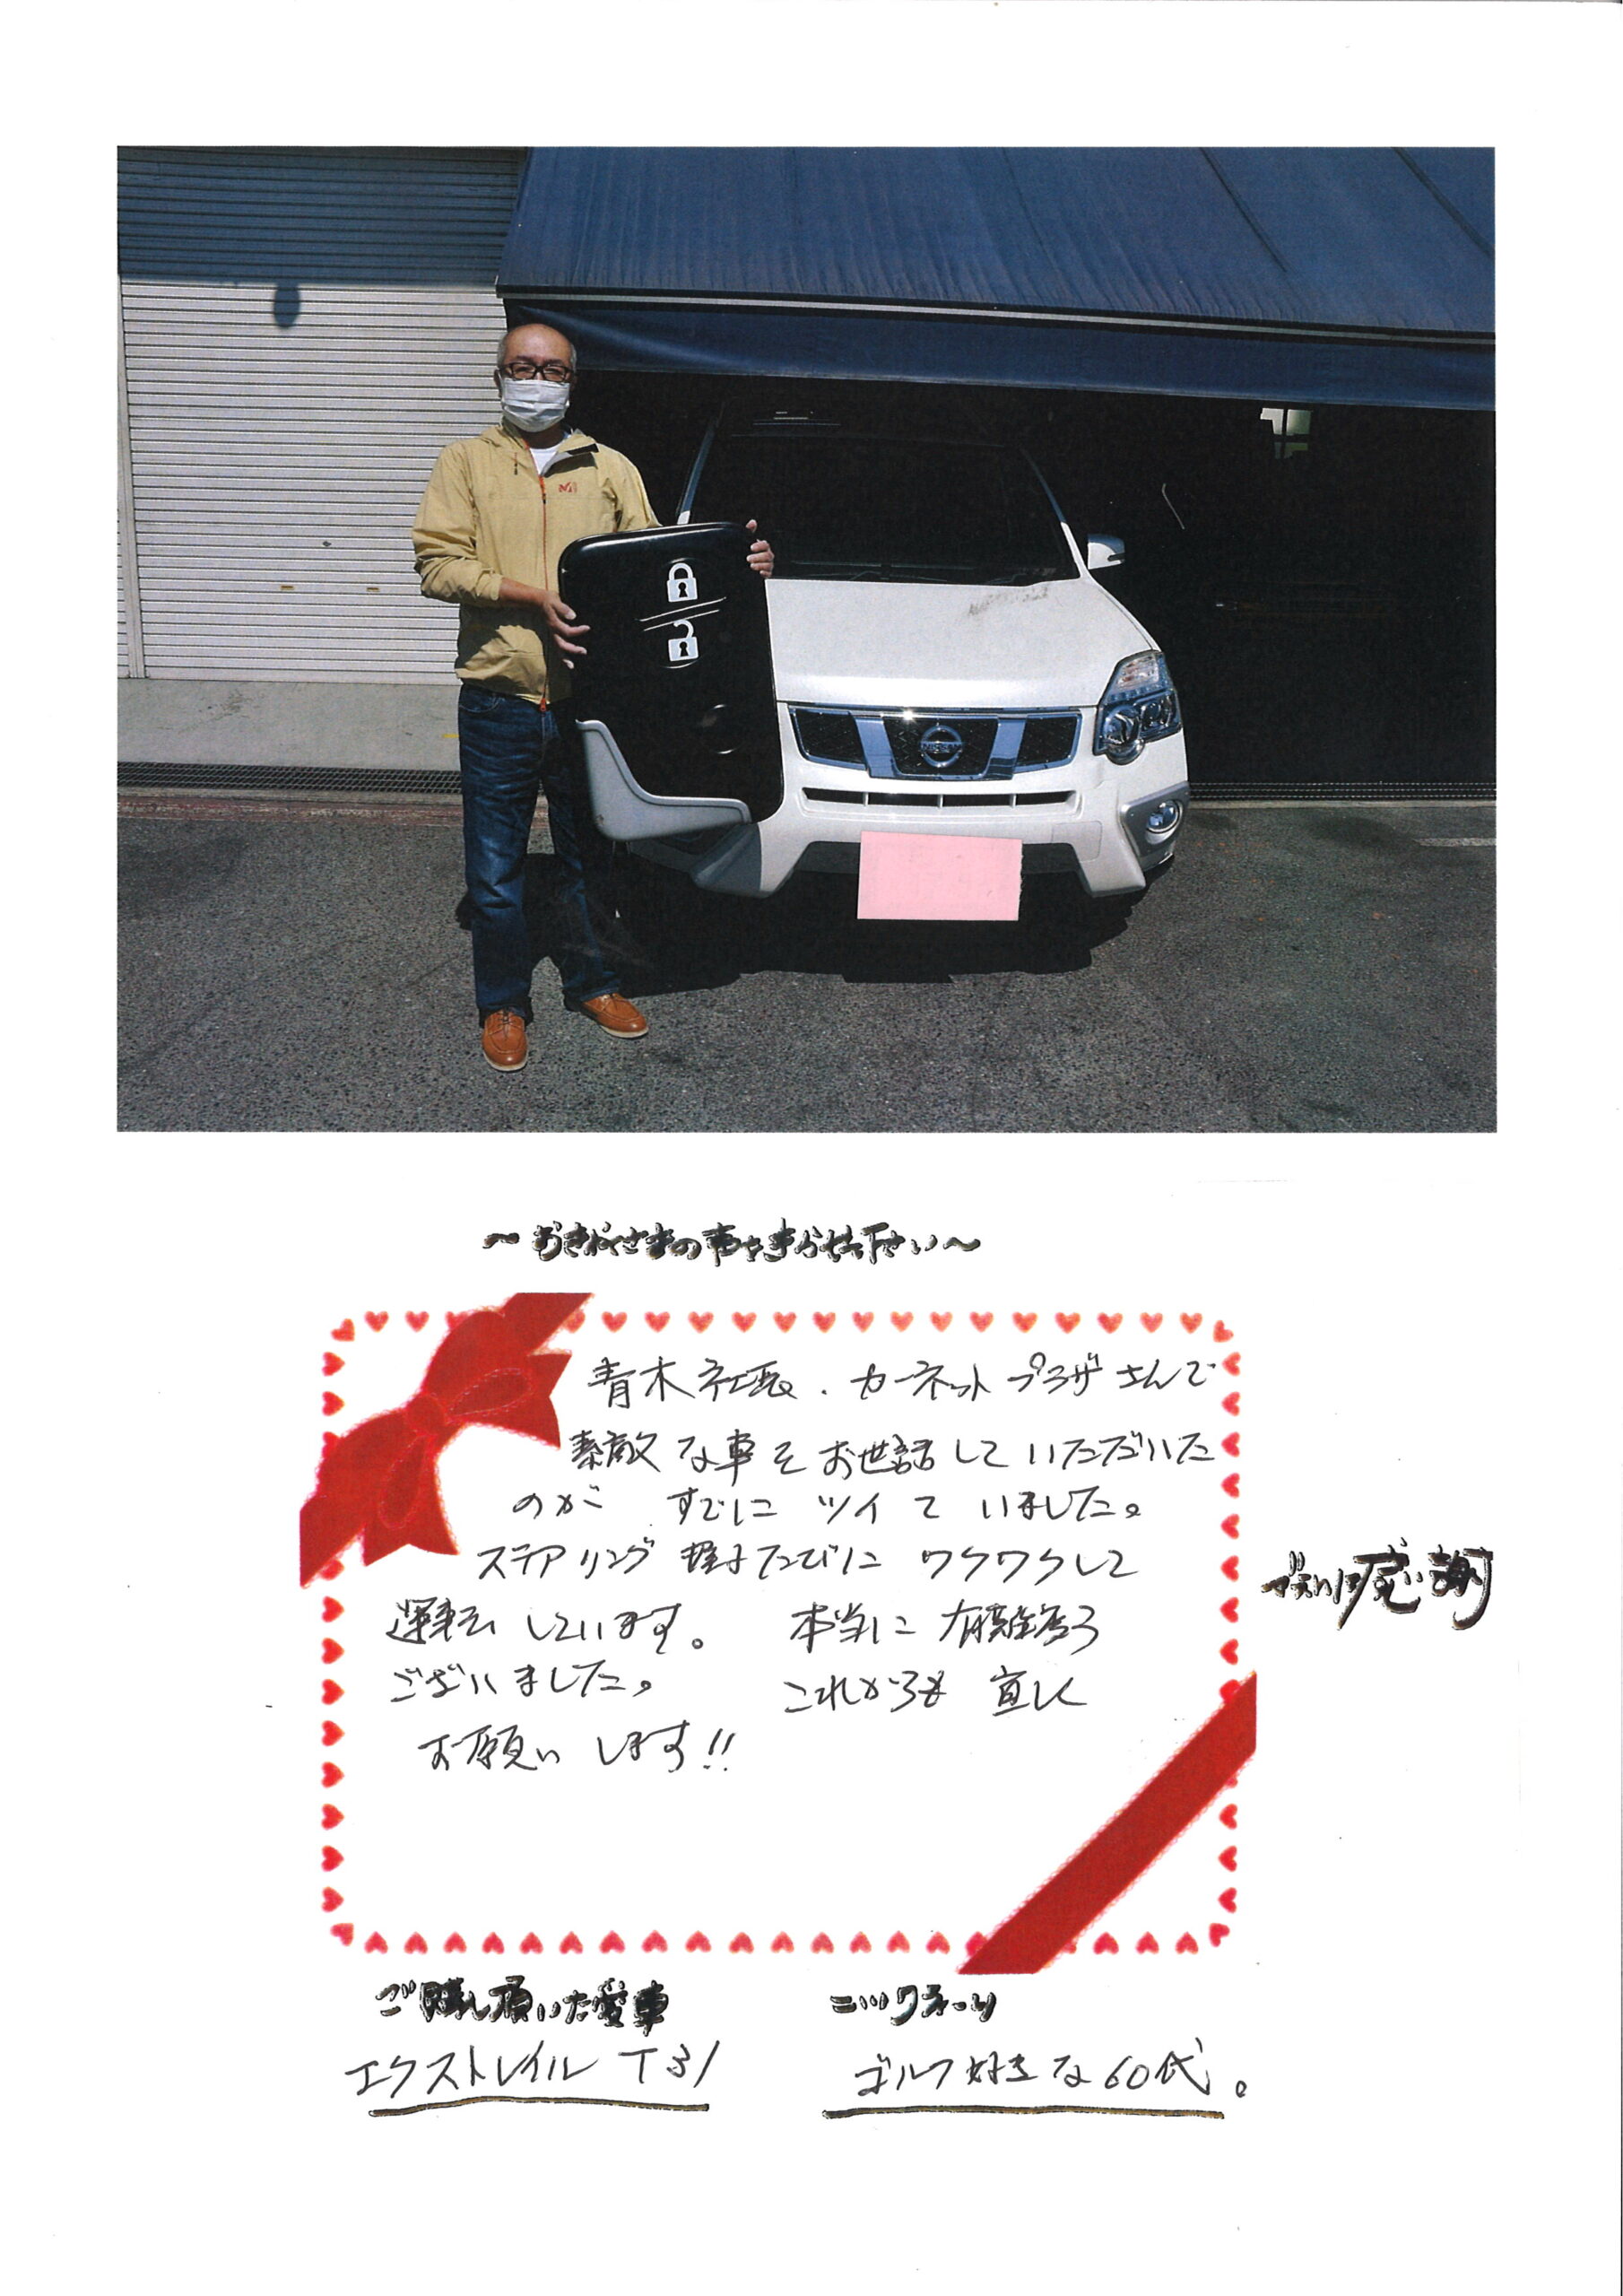 NISSAN
～おきゃくさまの声をきかせて下さい～
青木社長、カーネットプラザさんで
素敵な車をお世話していただいた
のが すでに ツイて いました。
ステアリング 握るたびに ワクワクして
運転しています。 本当に 有難う
ございました。 これからも 宜しく
お願い します!!
感謝
ご購入頂いた愛車
ニックネーム
エクストレイル T31
ゴルフ好きな60代。